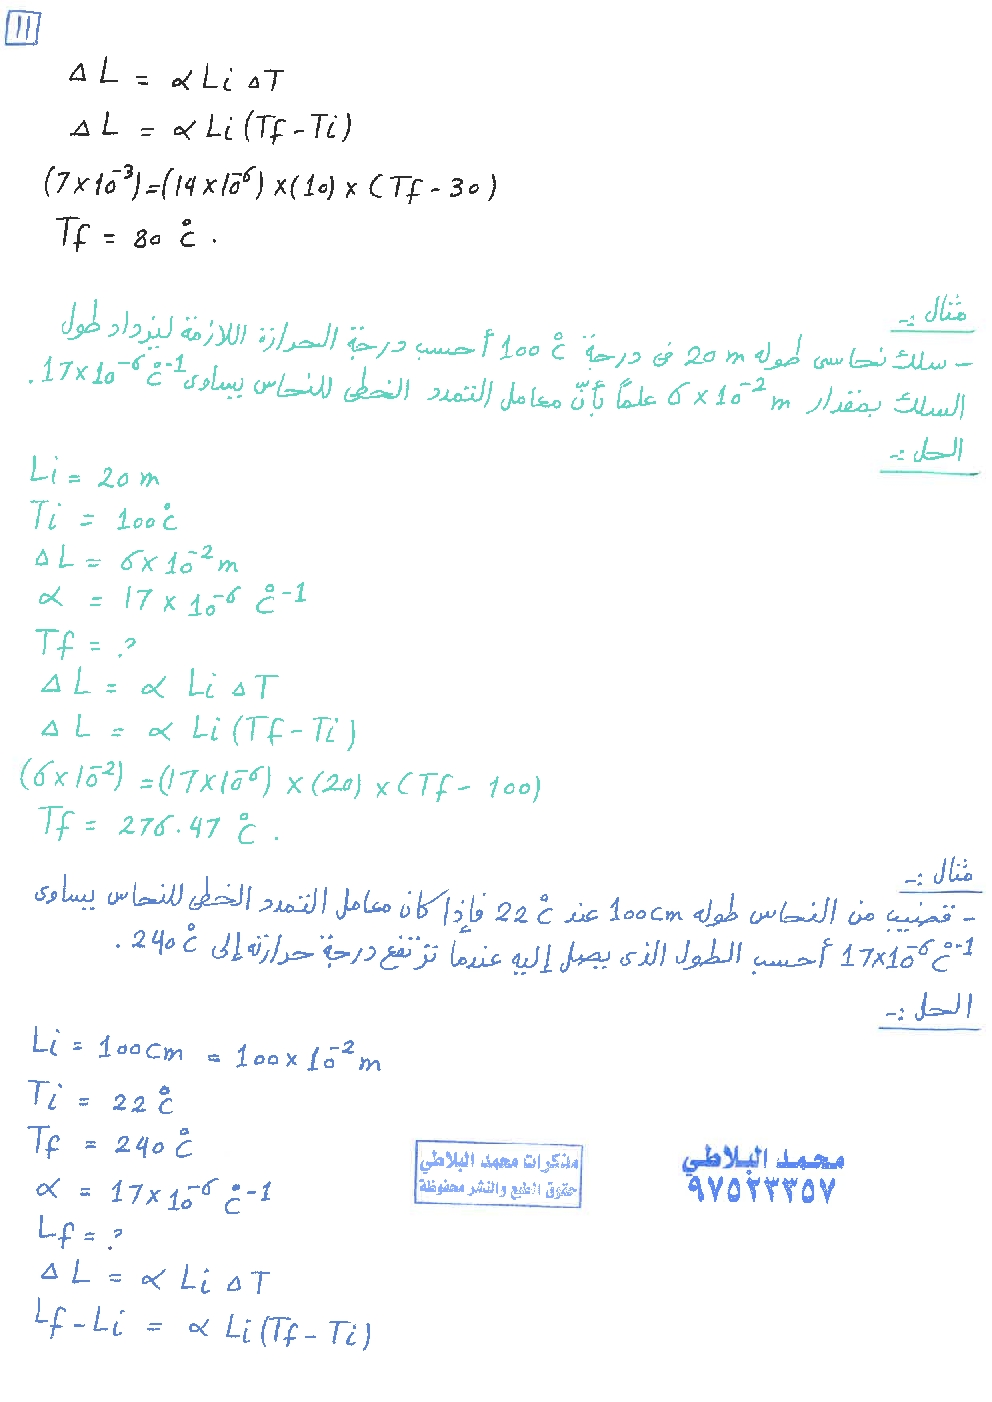 11
Δ L = α Li ΔT
Δ L = α Li (Tf - Ti)
(7 × 10⁻³) = (14 × 10⁻⁶) × (10) × (Tf - 30)
Tf = 80 °C .
مثال :-
- سلك نحاسى طوله 20 m فى درجة 100 °C أحسب درجة الحرارة اللازمة ليزداد طول
السلك بمقدار 6 × 10⁻² m علماً بأنّ معامل التمدد الخطى للنحاس يساوى 17×10⁻⁶ °C⁻¹ .
الحل :-
Li = 20 m
Ti = 100 °C
Δ L = 6 × 10⁻² m
α = 17 × 10⁻⁶ °C⁻¹
Tf = ?
Δ L = α Li ΔT
Δ L = α Li (Tf - Ti)
(6 × 10⁻²) = (17 × 10⁻⁶) × (20) × (Tf - 100)
Tf = 276.47 °C .
مثال :-
- قضيب من النحاس طوله 100 cm عند 22 °C فإذا كان معامل التمدد الخطى للنحاس يساوى
17×10⁻⁶ °C⁻¹ أحسب الطول الذى يصل إليه عندما ترتفع درجة حرارته إلى 240 °C .
الحل :-
Li = 100 cm = 100 × 10⁻² m
Ti = 22 °C
Tf = 240 °C
α = 17 × 10⁻⁶ °C⁻¹
Lf = ?
Δ L = α Li ΔT
Lf - Li = α Li (Tf - Ti)
مذكرات محمد البلاطي
حقوق الطبع والنشر محفوظة
محمد البلاطي
٩٧٥٢٣٣٥٧